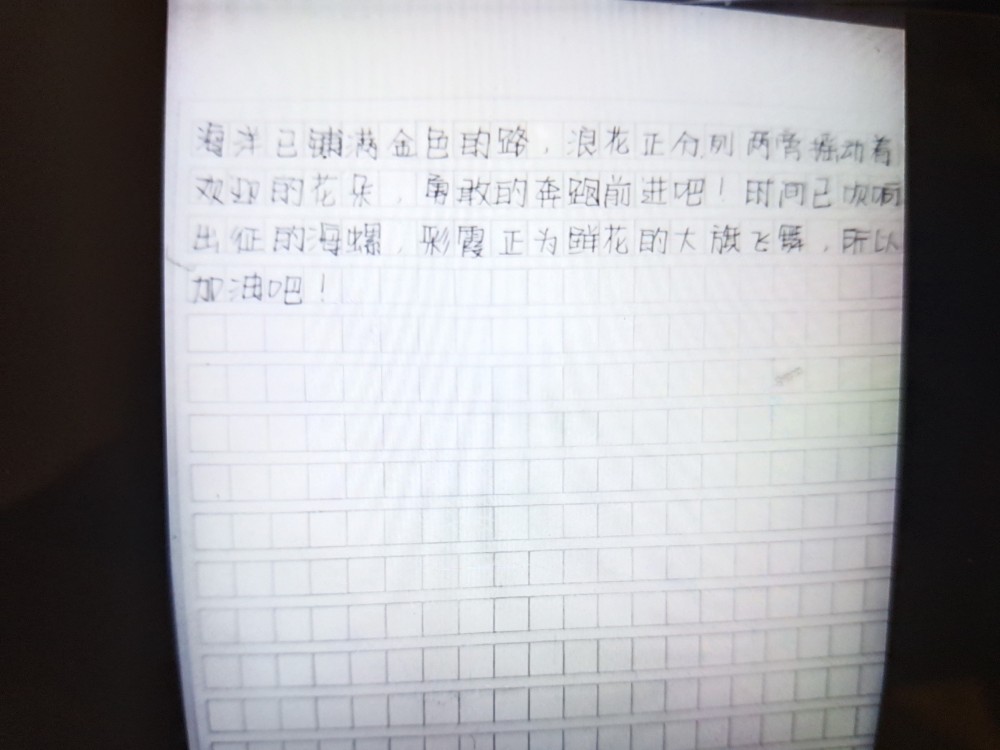 海洋已铺满金色的路，浪花正分列两旁摇动着
欢迎的花朵，勇敢的奔跑前进吧！时间已吹响
出征的海螺，彩霞正为鲜花的大旗飞舞，所以
加油吧！